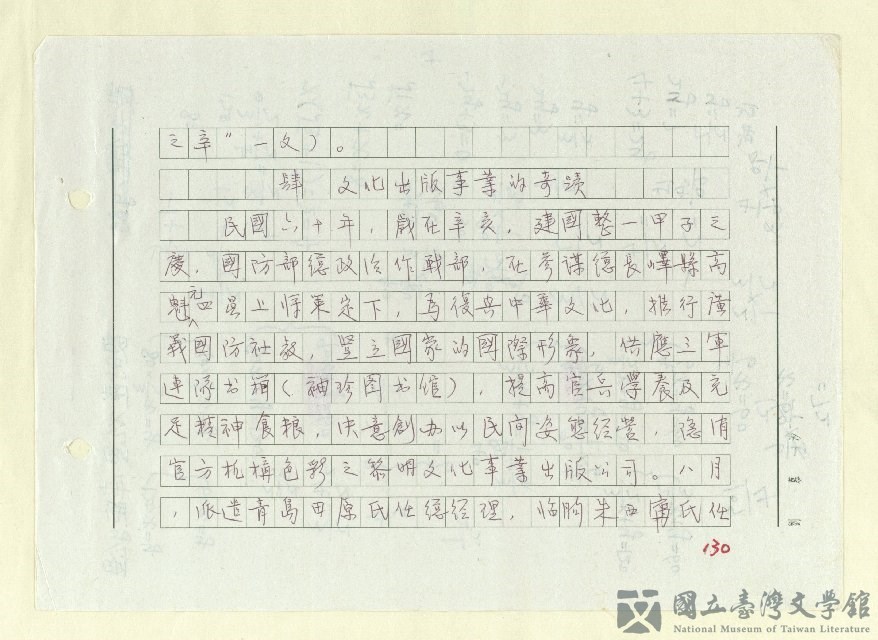 之辛”一文)。
肆 文化出版事業的奇蹟
民國六十年,歲在辛亥,建國整一甲子之
慶,國防部總政治作战部,在參谋總長嶧縣高
魁元四星上将策定下,為復兴中華文化,推行廣
義國防社教,豎立國家的國際形象,供應三軍
連隊书箱(袖珍图书馆),提高官兵學養及充
足精神食粮,决意創办以民间姿態经营,隐消
官方机構色彩之黎明文化事業出版公司。八月
,派遣青島田原氏任總经理,临朐朱西甯氏任
130
國立臺灣文學館
National Museum of Taiwan Literature